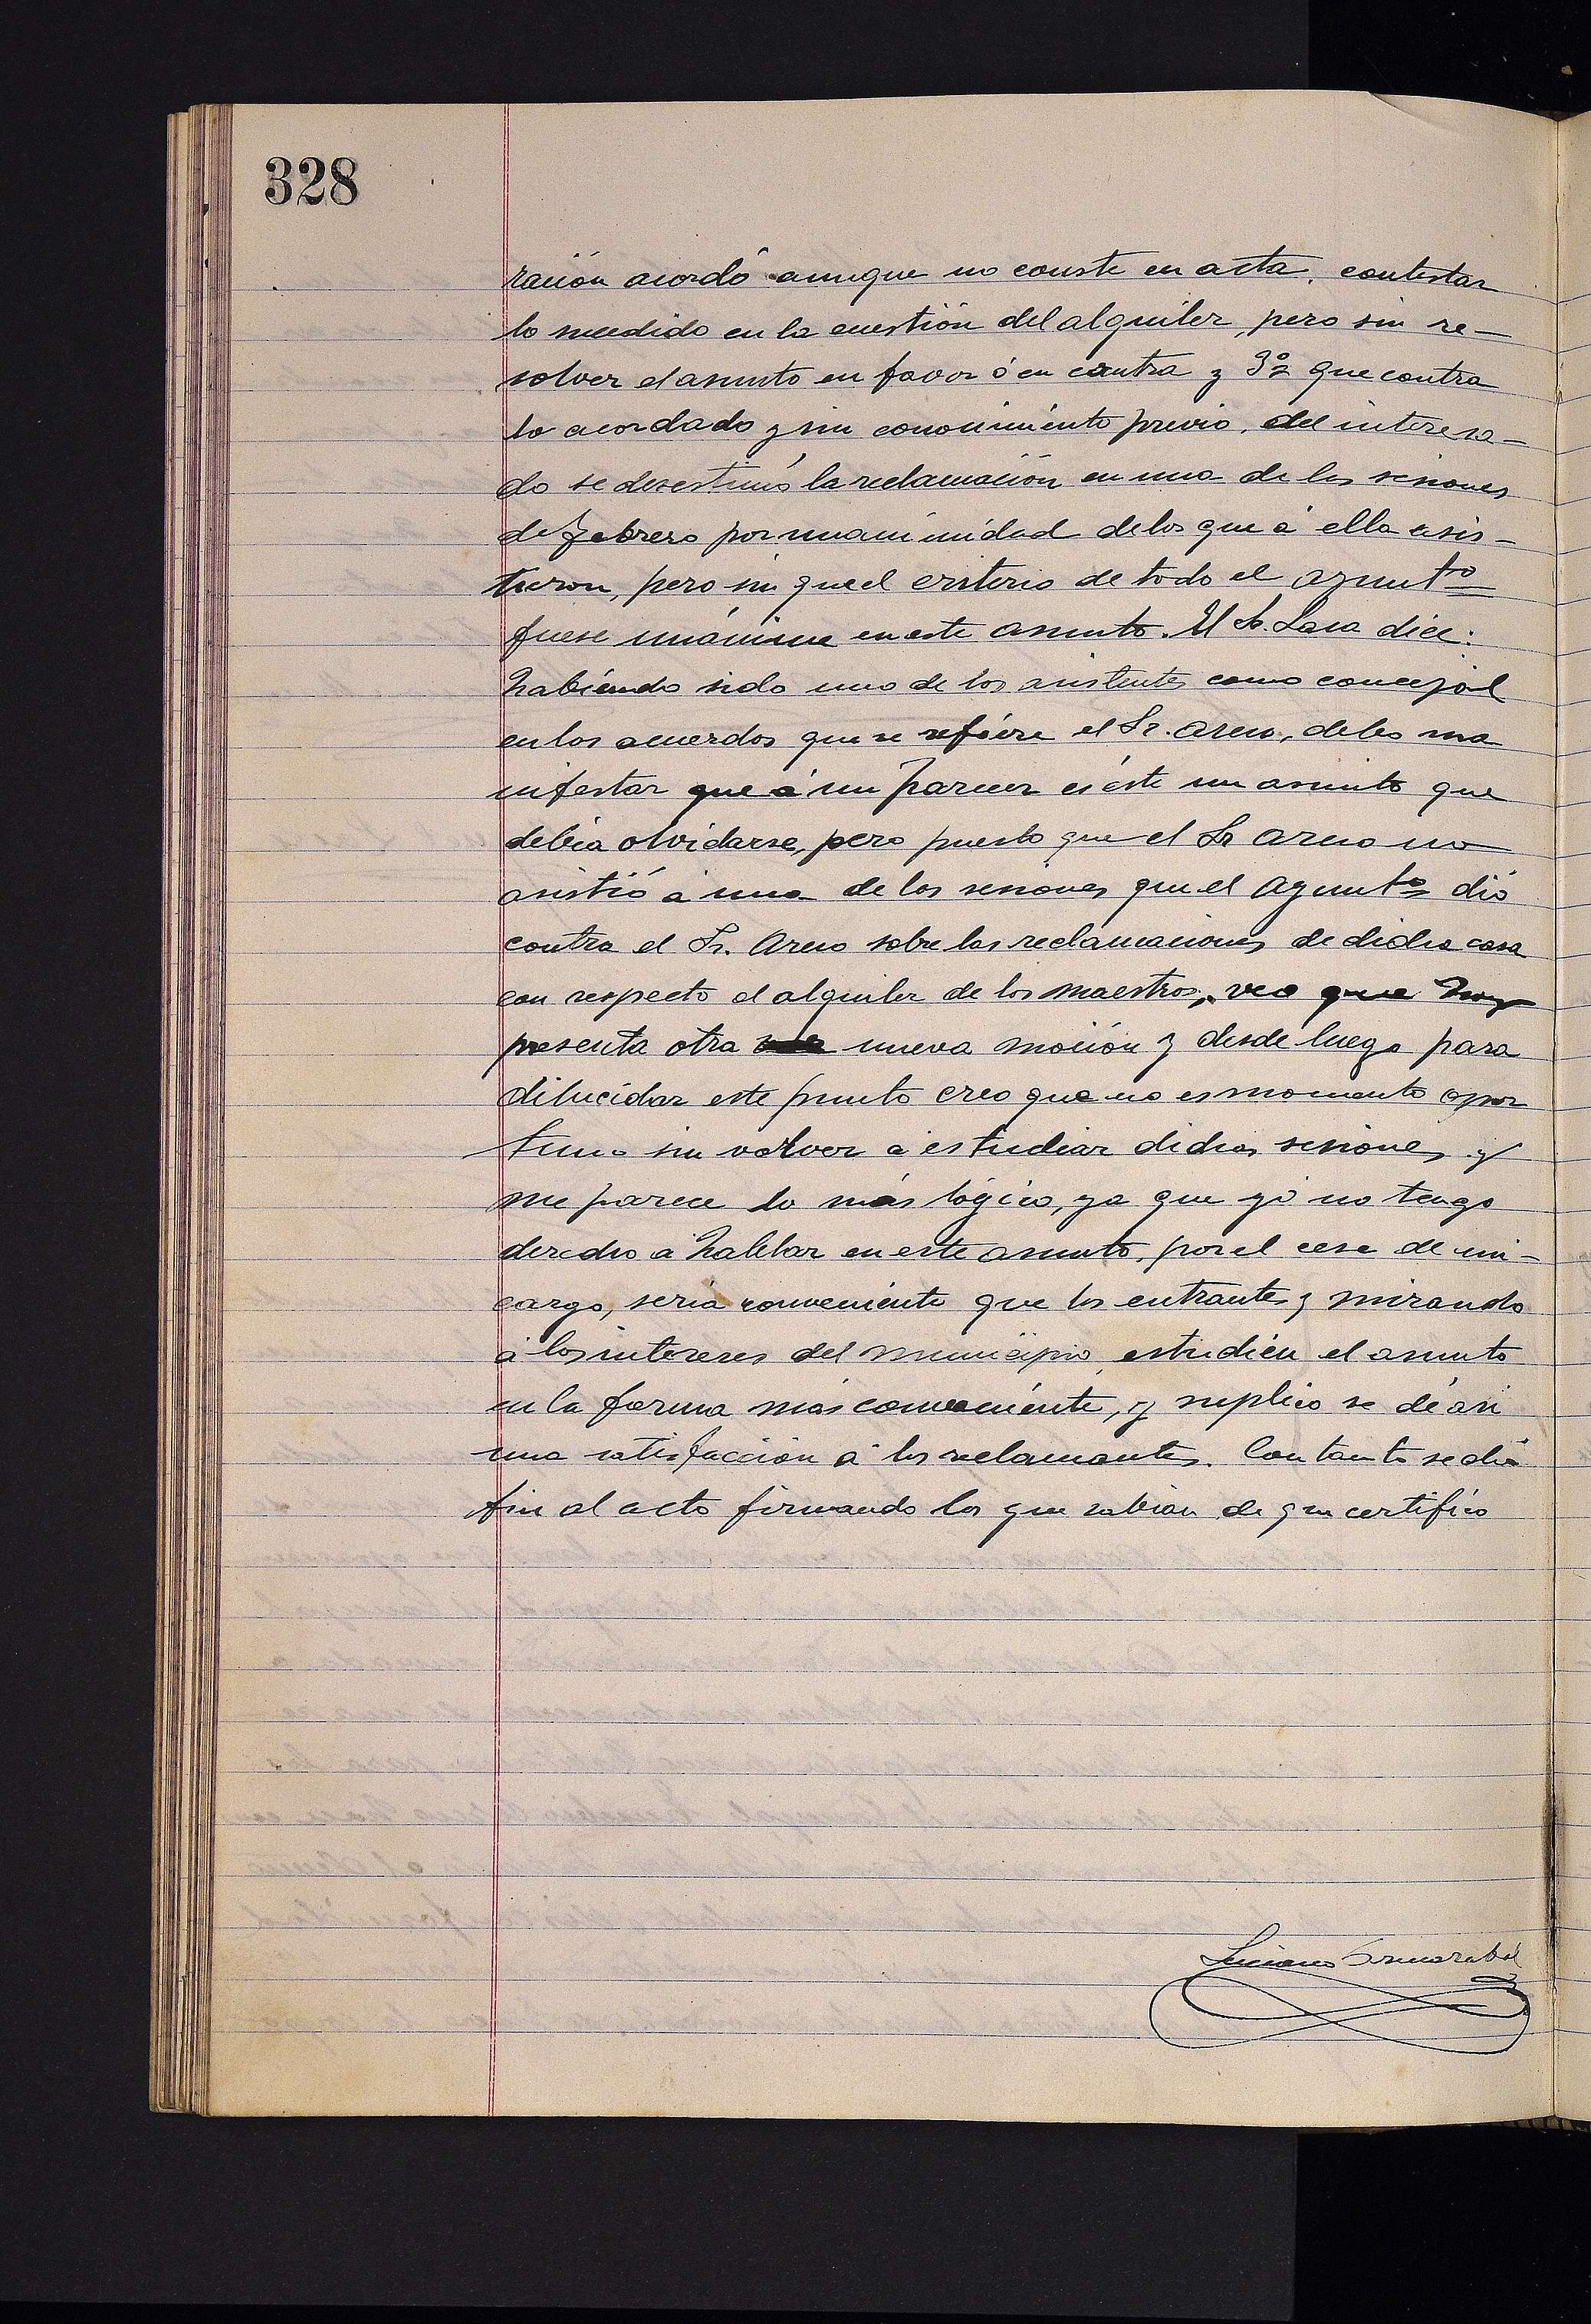 328
ración acordó aunque no conste en acta, contestar
lo sucedido en la cuestión del alquiler, pero sin re-
solver el asunto en favor ó en contra y 3º que contra
lo acordado y sin conocimiento previo, del interesa-
do se desestimó la reclamación en una de las sesiones
de Febrero por unanimidad de los que á ella asis-
tieron, pero sin que el criterio de todo el ayuntº
fuese unánime en este asunto. El Sr. Lasa dice:
habiendo sido uno de los asistentes como concejal
en los acuerdos que se refiere el Sr. Areso, debo ma
nifestar que á mi parecer es éste un asunto que
debia olvidarse, pero puesto que el Sr Areso no
asistió á una de las sesiones que el Ayuntº dió
contra el Sr. Areso sobre las reclamaciones de dicha casa
con respecto al alquiler de los maestros, veo que hoy
presenta otra nueva moción y desde luego para
dilucidar este punto creo que no es momento opor
tuno sin volver á estudiar dichas sesiones y
me parece lo más lógico, ya que yó no tengo
derecho á hablar en este asunto, por el cese de mi
cargo, seria conveniente que los entrantes y mirando
á los intereses del municipio, estudien el asunto
en la forma más conveniente, y suplico se dé asi
una satisfacción á los reclamantes. Con tanto se dió
fin al acto firmando los que sabian de que certifico
Luciano